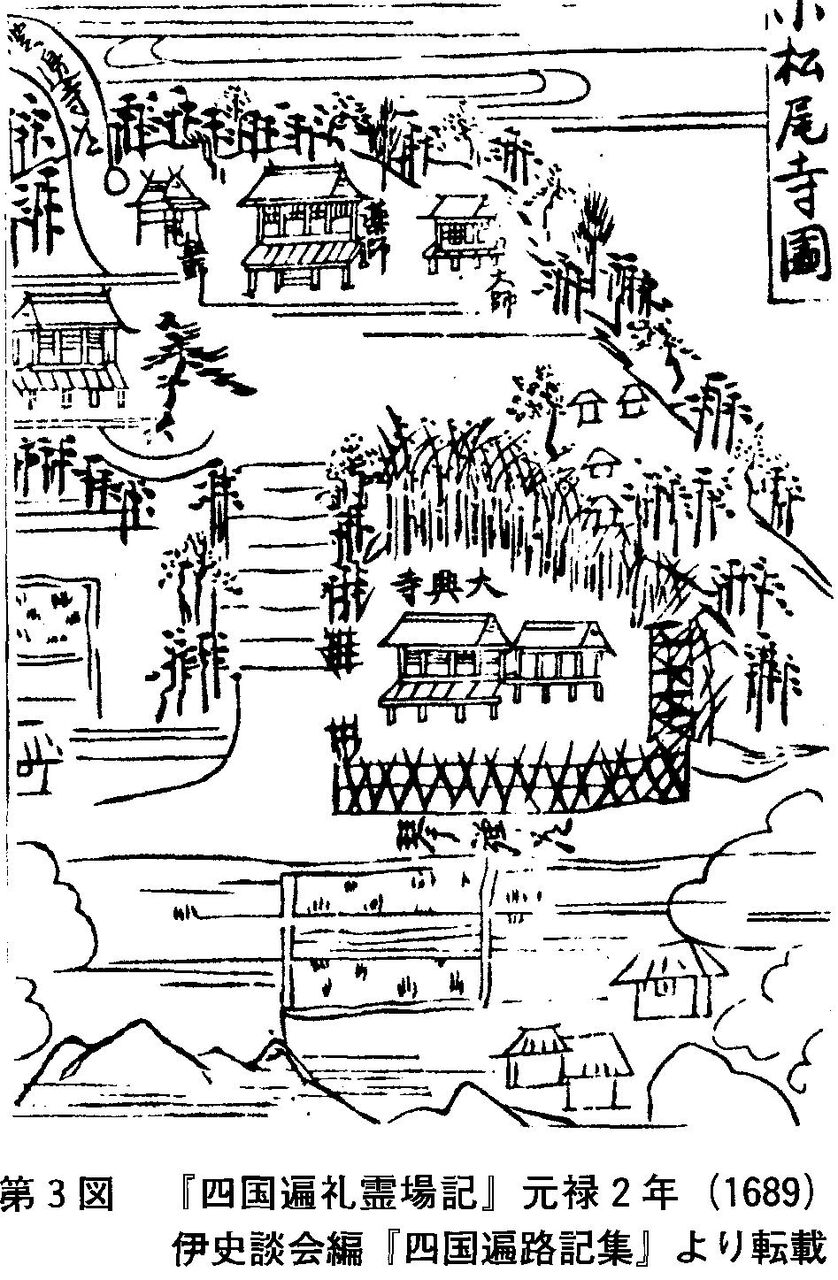 小松尾寺圖
薬師
大師
大興寺
第3図 『四国遍礼霊場記』元禄2年（1689）
伊史談会編『四国遍路記集』より転載